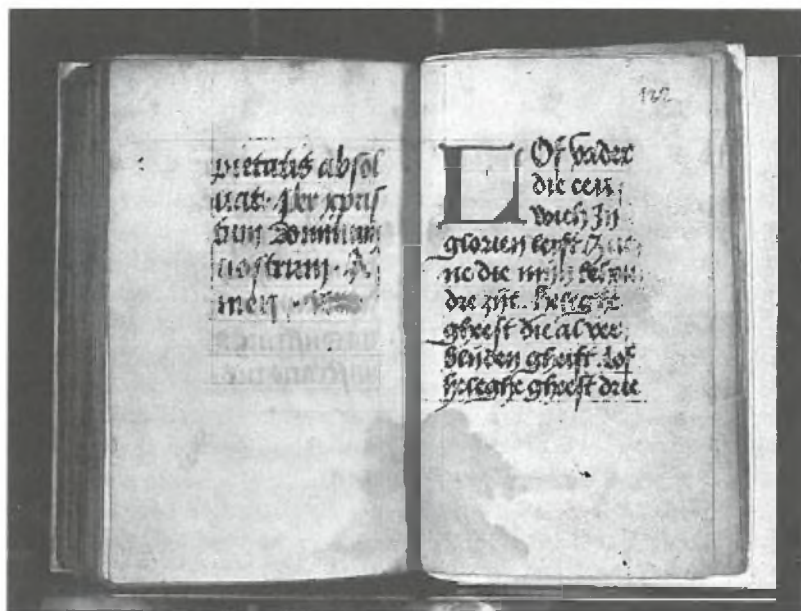 pietatis absol
uat. Per xpris
tum Dominum
nostrum. A
men.
122
LOf vader
die eeu
wich In
glorien leyft
ne die mijn behou
dre zijt. heleghe
gheest die al ver
binden gheift. lof
heleghe gheest drie